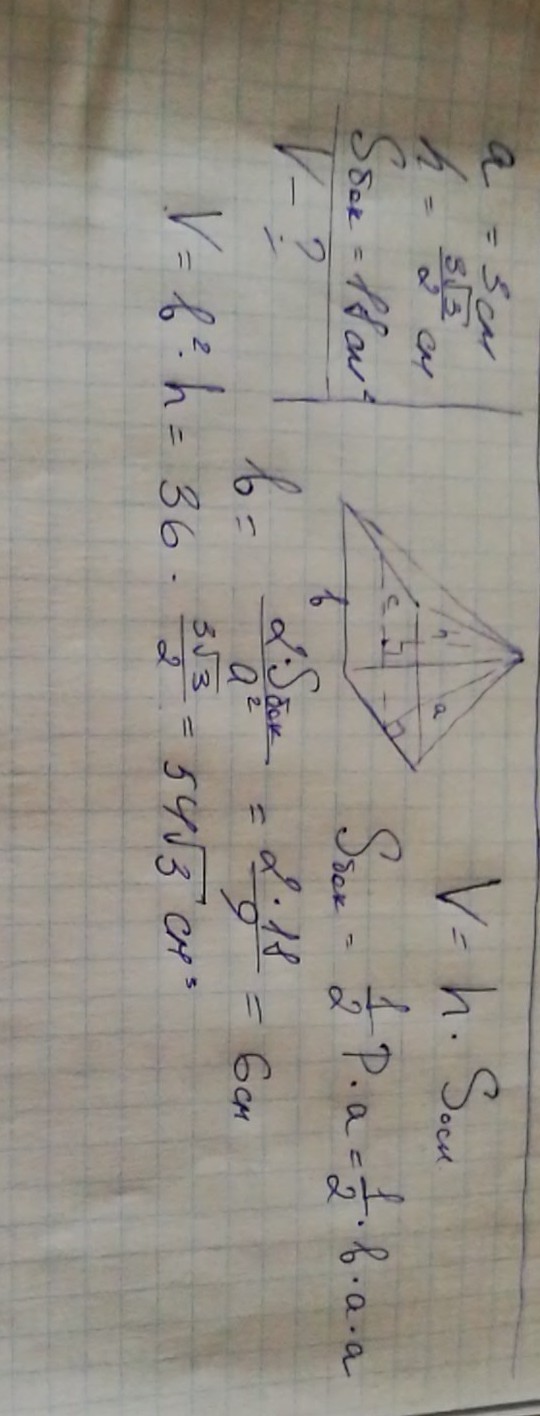 a = 3 см
h = 3√3/2 см
Sбок = 18 см²
V - ?
a
h
c
b
V = h · Sосн
Sбок = 1/2 P · a = 1/2 · b · a · a
b = 2·Sбок/a² = 2·18/9 = 6 см
V = b² · h = 36 · 3√3/2 = 54√3 см³